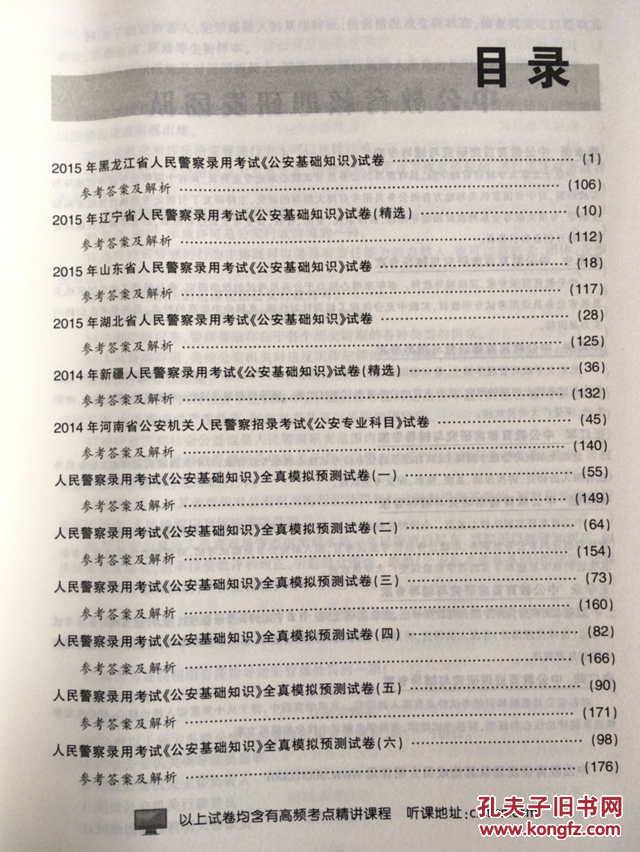 目录
2015年黑龙江省人民警察录用考试《公安基础知识》试卷 ………………………… (1)
参考答案及解析 ………………………… (106)
2015年辽宁省人民警察录用考试《公安基础知识》试卷(精选) ………………………… (10)
参考答案及解析 ………………………… (112)
2015年山东省人民警察录用考试《公安基础知识》试卷 ………………………… (18)
参考答案及解析 ………………………… (117)
2015年湖北省人民警察录用考试《公安基础知识》试卷 ………………………… (28)
参考答案及解析 ………………………… (125)
2014年新疆人民警察录用考试《公安基础知识》试卷(精选) ………………………… (36)
参考答案及解析 ………………………… (132)
2014年河南省公安机关人民警察招录考试《公安专业科目》试卷 ………………………… (45)
参考答案及解析 ………………………… (140)
人民警察录用考试《公安基础知识》全真模拟预测试卷(一) ………………………… (55)
参考答案及解析 ………………………… (149)
人民警察录用考试《公安基础知识》全真模拟预测试卷(二) ………………………… (64)
参考答案及解析 ………………………… (154)
人民警察录用考试《公安基础知识》全真模拟预测试卷(三) ………………………… (73)
参考答案及解析 ………………………… (160)
人民警察录用考试《公安基础知识》全真模拟预测试卷(四) ………………………… (82)
参考答案及解析 ………………………… (166)
人民警察录用考试《公安基础知识》全真模拟预测试卷(五) ………………………… (90)
参考答案及解析 ………………………… (171)
人民警察录用考试《公安基础知识》全真模拟预测试卷(六) ………………………… (98)
参考答案及解析 ………………………… (176)
以上试卷均含有高频考点精讲课程 听课地址:
孔夫子旧书网